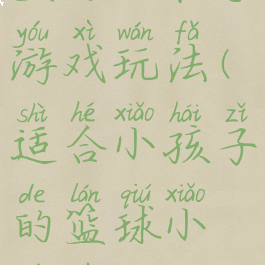 yóu xì wán fǎ
游戏玩法(
shì hé xiǎo hái zǐ
适合小孩子
de lán qiú xiǎo
的篮球小